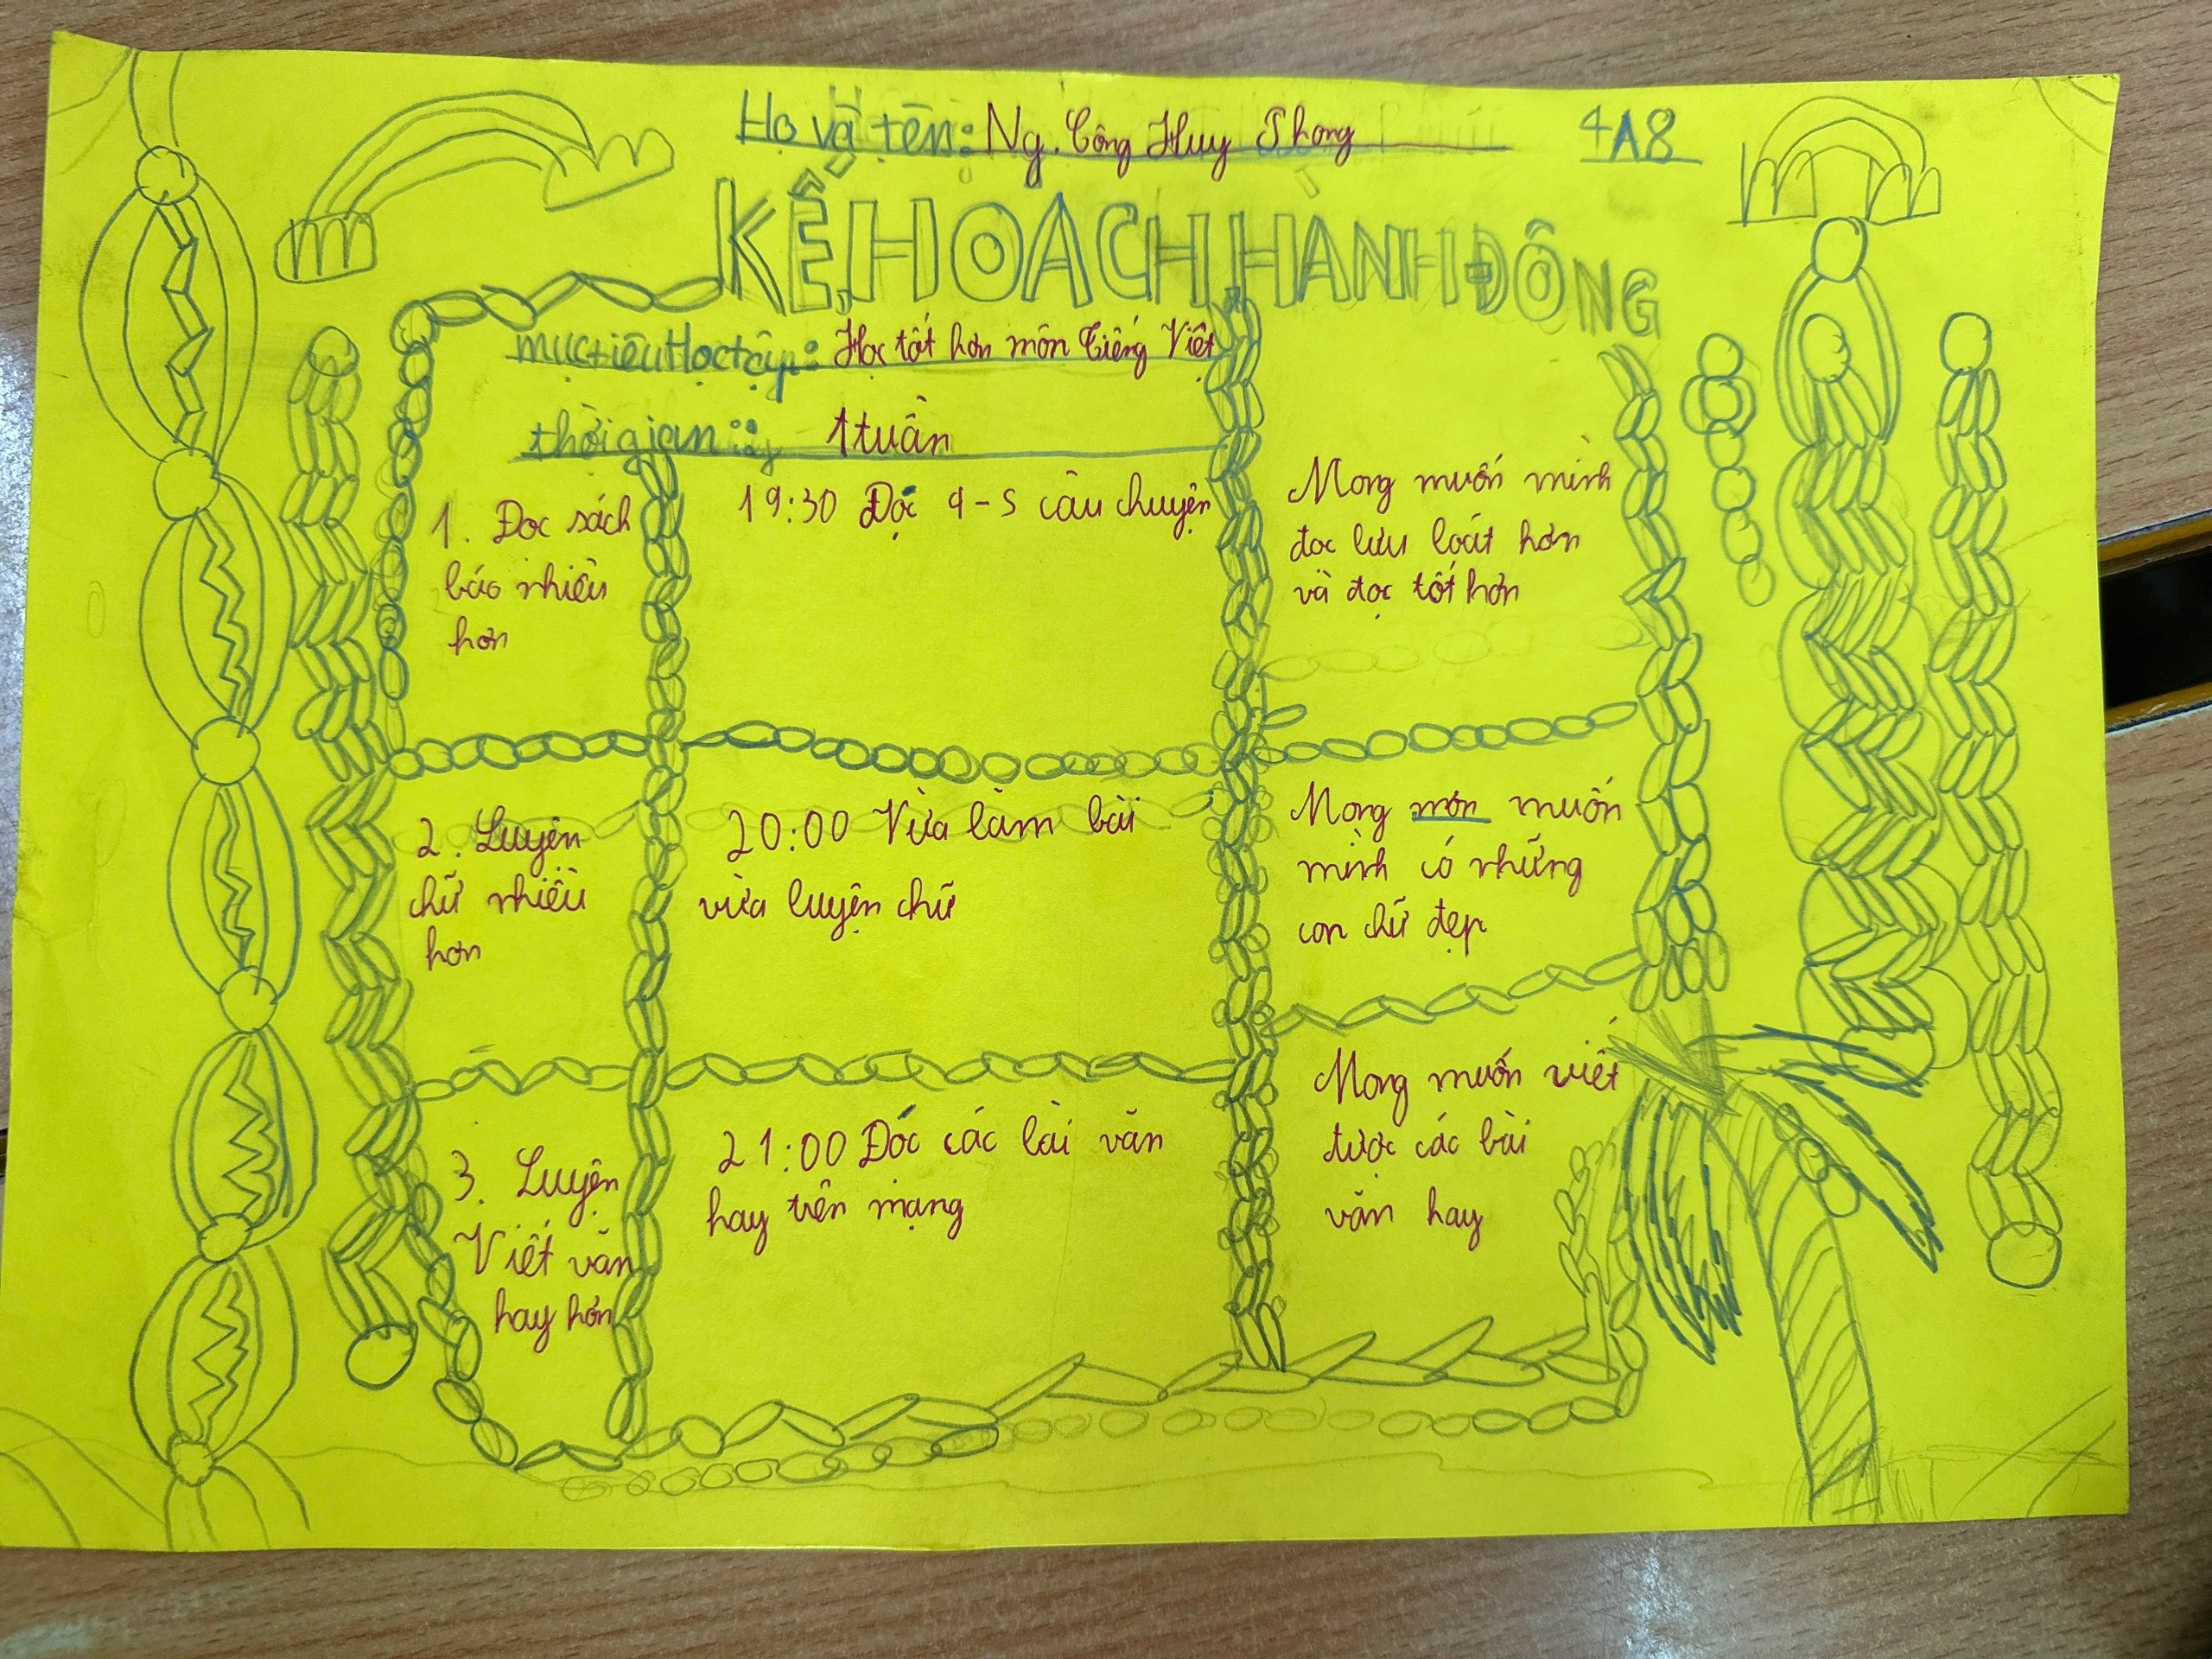 Họ và tên: Ng. Công Huy Phong 4A8
KẾ HOẠCH HÀNH ĐỘNG
mục tiêu Học tập: Học tốt hơn môn Tiếng Việt
thời gian: 1 tuần
1. Đọc sách
báo nhiều
hơn
19:30 Đọc 4-5 câu chuyện
Mong muốn mình
đọc lưu loát hơn
và đọc tốt hơn
2. Luyện
chữ nhiều
hơn
20:00 Vừa làm bài
vừa luyện chữ
Mong món muốn
mình có những
con chữ đẹp
3. Luyện
Viết văn
hay hơn
21:00 Đóc các bài văn
hay trên mạng
Mong muốn viết
được các bài
văn hay